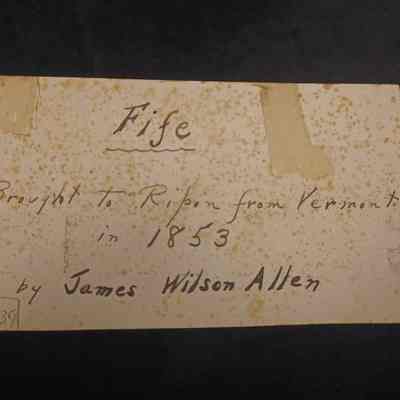 Fife
Brought to Ripon from Vermont
in 1853
by James Wilson Allen
39